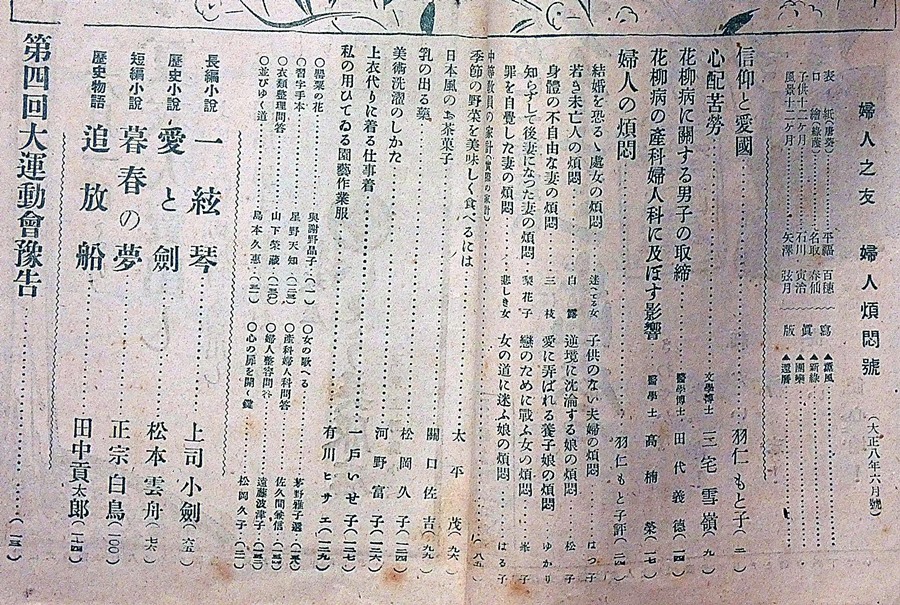 婦人之友 婦人煩悶號 (大正八年六月號)
表紙(唐葵)‥平福百穗
口繪(綠蔭)‥名取春仙
子供十二ケ月‥石川寅治
風景十二ケ月‥矢澤弦月
寫眞版
▲薰風
▲新綠
▲團樂
▲還曆
信仰と愛國……羽仁もと子(二)
心配苦勞……文學博士 三宅雪嶺(九)
花柳病に關する男子の取締……醫學博士 田代義德(一四)
花柳病の產科婦人科に及ぼす影響……醫學士 高楠榮(一七)
婦人の煩悶……羽仁もと子評(二四)
結婚を恐るゝ處女の煩悶 迷へる女
子供のない夫婦の煩悶 はつ子
若き未亡人の煩悶 白露
逆境に沈淪する娘の煩悶 松子
身體の不自由な妻の煩悶 三枝
愛に弄ばれる養子娘の煩悶 ゆかり
知らずして後妻になつた妻の煩悶 梨花子
戀のために戰ふ女の煩悶 米子
罪を自覺した妻の煩悶 悲しき女
女の道に迷ふ娘の煩悶 はる子
中等敎員の家計(實際の家計)……(八五)
季節の野菜を美味しく食べるには
日本風のお茶菓子……太平茂(九六)
乳の出る藥……關口佐吉(九九)
美術洗濯のしかた……松岡久子(一二四)
上衣代りに着る仕事着……河野富子(一二六)
私の用ひてゐる園藝作業服……一戶いせ子(一二七)
有川ヒサエ(一二九)
○罌粟の花……與謝野晶子
○女の歌へる……茅野雅子選
○習字手本……星野天知
○產科婦人科問答……佐久間兼信
○衣類整理問答……山下榮藏
○婦人整容問答……遠藤波津子
○並びゆく道……島本久惠
○心の扉を開く鍵……松岡久子
長編小說 一絃琴……上司小劍
歷史小說 愛と劍……松本雲舟
短編小說 暮春の夢……正宗白鳥(一〇〇)
歷史物語 追放船……田中貢太郎
第四回大運動會豫告……